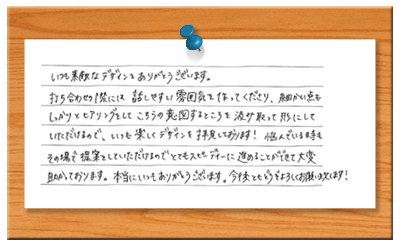 いつも素敵なデザインをありがとうございます。
打ち合わせの際には 話しやすい雰囲気を作ってくださり、細かい点も
しっかりとヒアリングをして こちらの意図するところを汲み取って形にして
いただけるので、いつも楽しくデザインを拝見しております! 悩んでいる時も
その場で提案をしていただけるので とてもスピーディーに進めることができて大変
助かっております。本当にいつもありがとうございます。今後ともどうぞよろしくお願い致します!